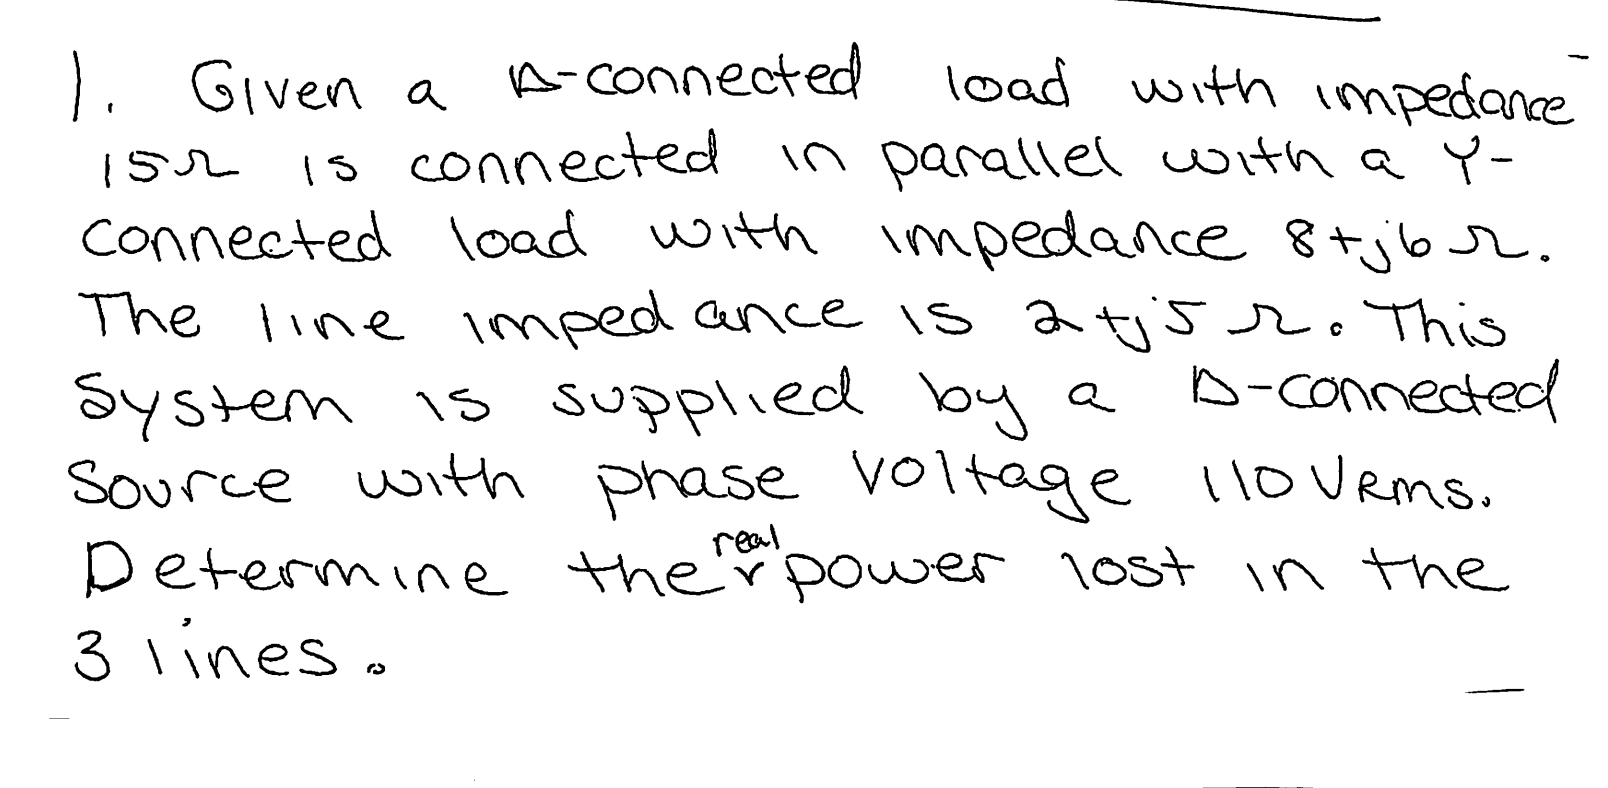 1. Given a Δ-connected load with impedance
15Ω is connected in parallel with a Y-
connected load with impedance 8+j6Ω.
The line impedance is 2+j5Ω. This
System is supplied by a Δ-connected
Source with phase voltage 110 VRMS.
Determine the real power lost in the
3 lines.